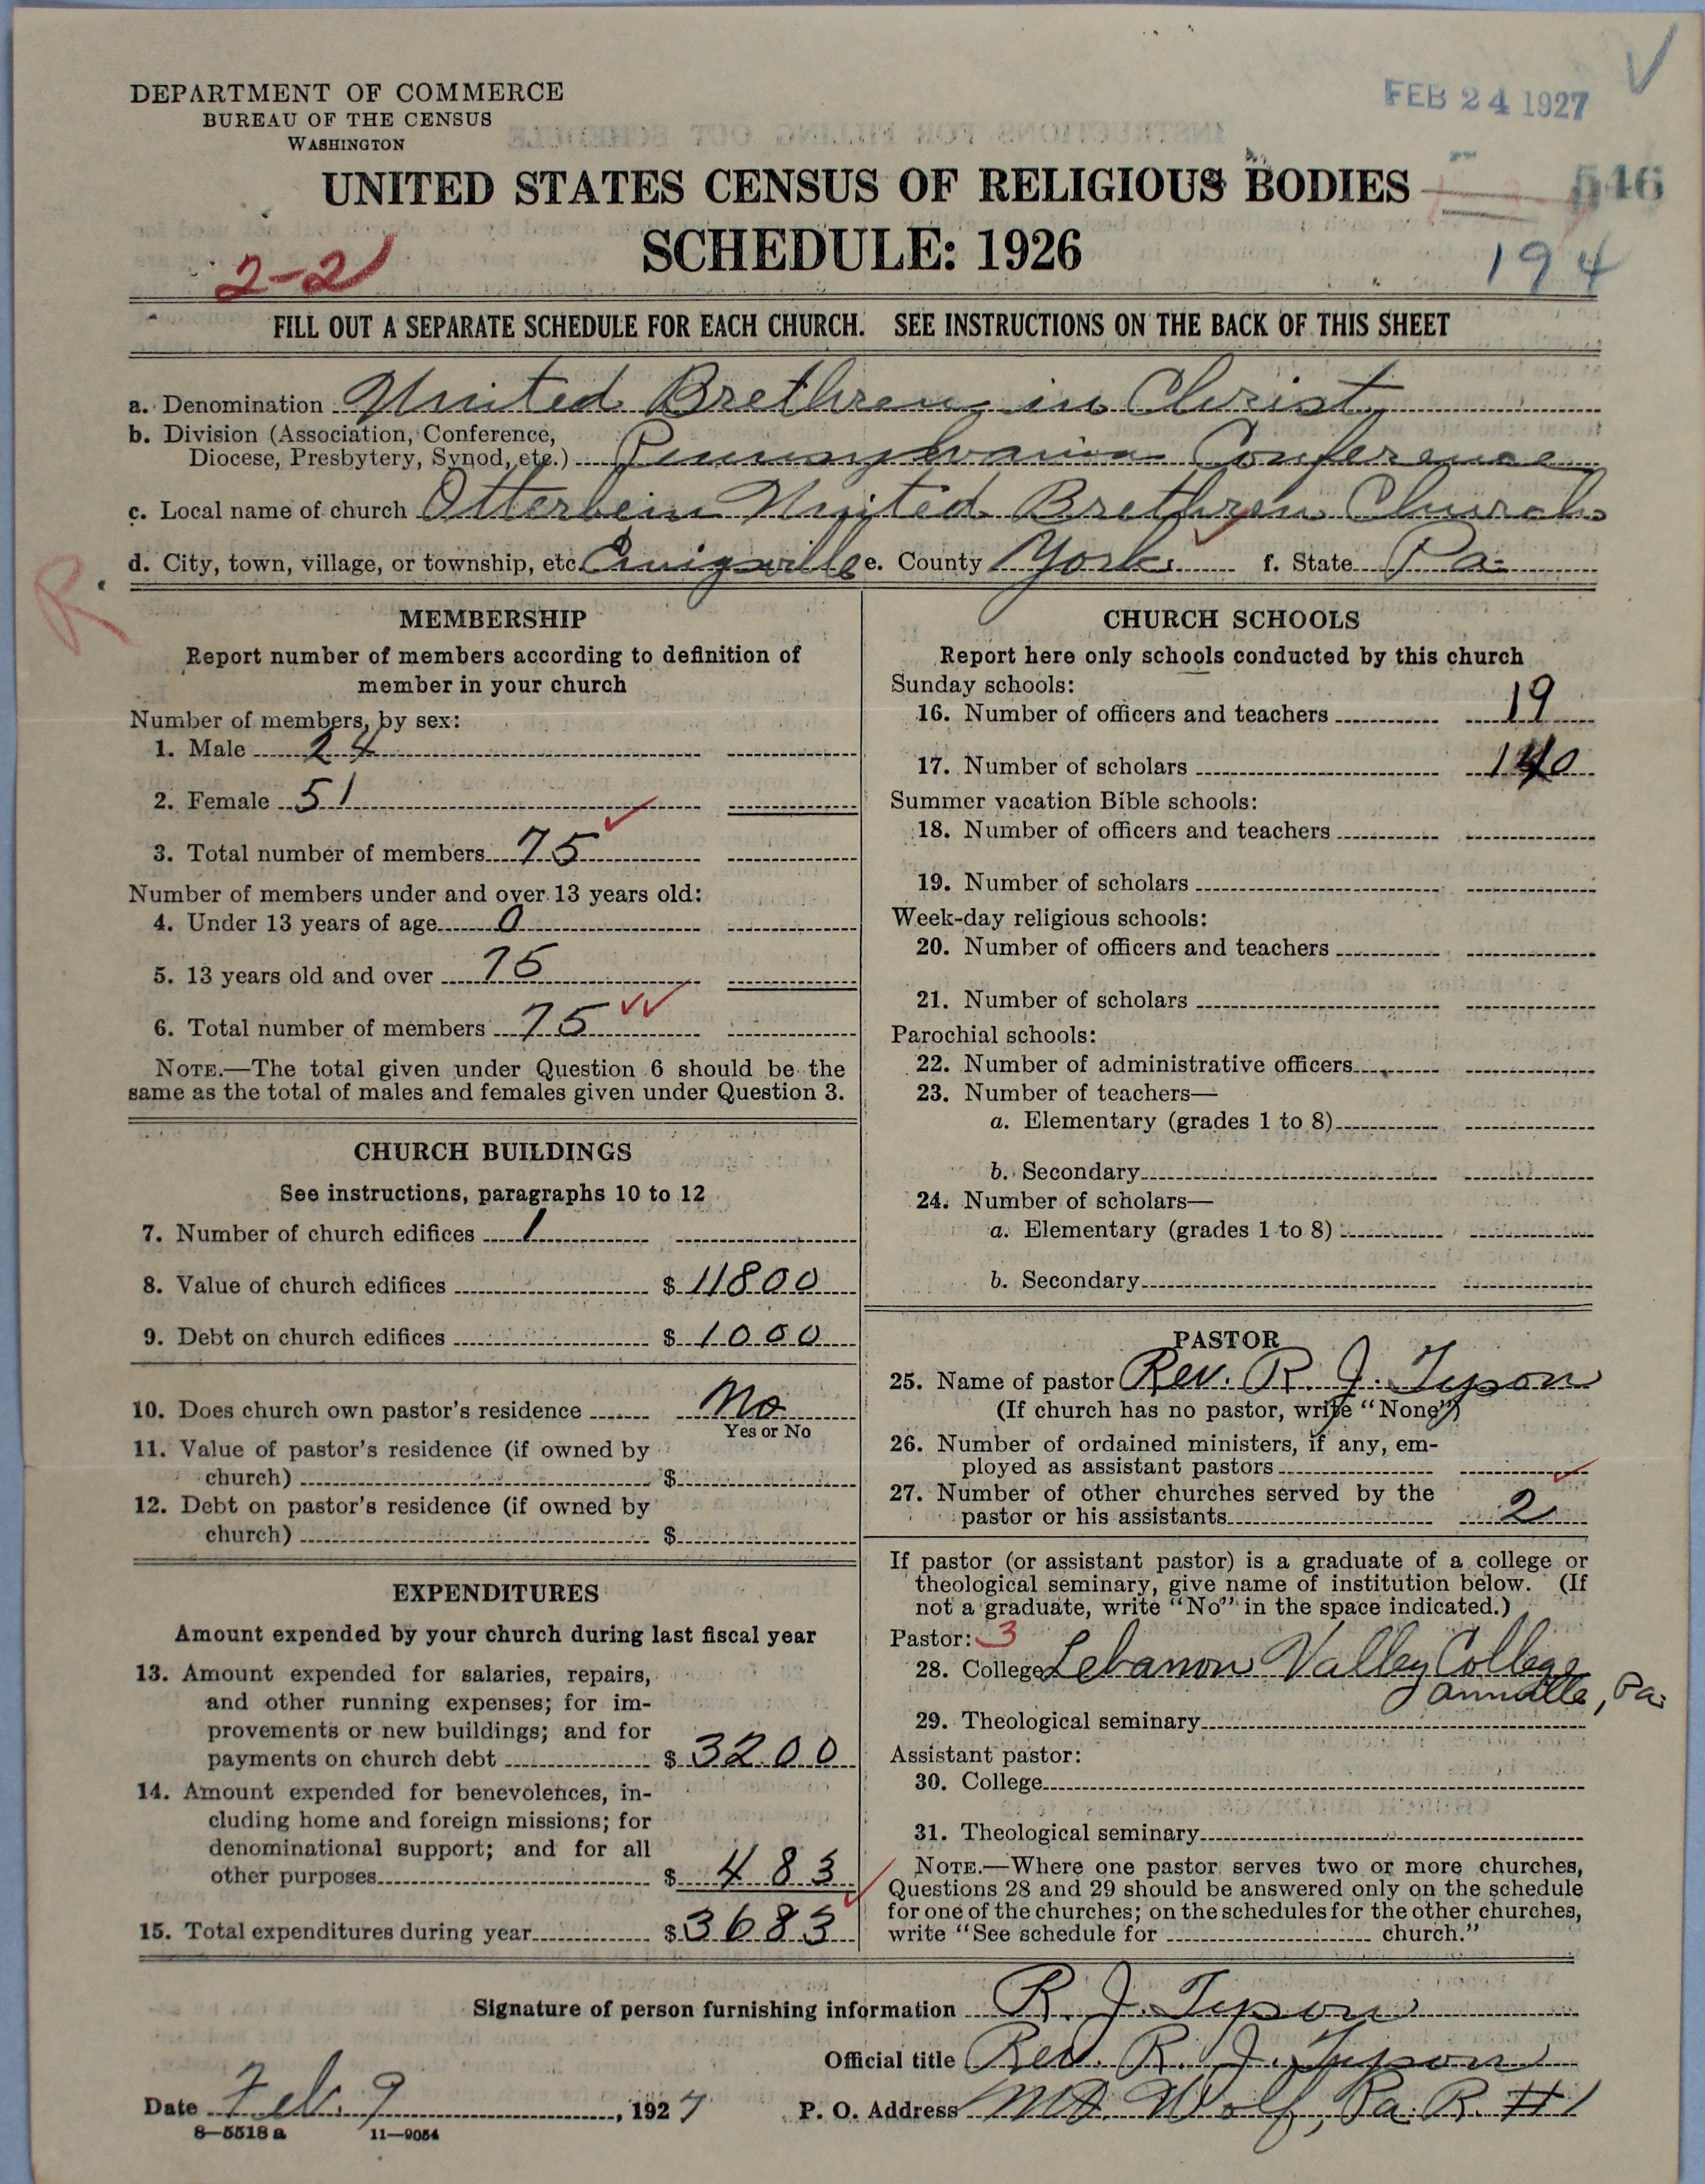 DEPARTMENT OF COMMERCE
BUREAU OF THE CENSUS
WASHINGTON
FEB 24 1927
UNITED STATES CENSUS OF RELIGIOUS BODIES
546
SCHEDULE: 1926
2-2
194
FILL OUT A SEPARATE SCHEDULE FOR EACH CHURCH. SEE INSTRUCTIONS ON THE BACK OF THIS SHEET
a. Denomination United Brethren in Christ
b. Division (Association, Conference,
Diocese, Presbytery, Synod, etc.) Pennsylvania Conference
c. Local name of church Otterbein United Brethren Church
d. City, town, village, or township, etc. Emigsville e. County York f. State Pa.
R
MEMBERSHIP
Report number of members according to definition of
member in your church
Number of members, by sex:
1. Male 24
2. Female 51
3. Total number of members 75
Number of members under and over 13 years old:
4. Under 13 years of age 0
5. 13 years old and over 75
6. Total number of members 75
NOTE.—The total given under Question 6 should be the
same as the total of males and females given under Question 3.
CHURCH BUILDINGS
See instructions, paragraphs 10 to 12
7. Number of church edifices 1
8. Value of church edifices $ 11800
9. Debt on church edifices $ 1000
10. Does church own pastor's residence No
Yes or No
11. Value of pastor's residence (if owned by
church) $
12. Debt on pastor's residence (if owned by
church) $
EXPENDITURES
Amount expended by your church during last fiscal year
13. Amount expended for salaries, repairs,
and other running expenses; for im-
provements or new buildings; and for
payments on church debt $ 3200
14. Amount expended for benevolences, in-
cluding home and foreign missions; for
denominational support; and for all
other purposes $ 483
15. Total expenditures during year $ 3683
CHURCH SCHOOLS
Report here only schools conducted by this church
Sunday schools:
16. Number of officers and teachers 19
17. Number of scholars 140
Summer vacation Bible schools:
18. Number of officers and teachers
19. Number of scholars
Week-day religious schools:
20. Number of officers and teachers
21. Number of scholars
Parochial schools:
22. Number of administrative officers
23. Number of teachers—
a. Elementary (grades 1 to 8)
b. Secondary
24. Number of scholars—
a. Elementary (grades 1 to 8)
b. Secondary
PASTOR
25. Name of pastor Rev. R. J. Tyson
(If church has no pastor, write "None")
26. Number of ordained ministers, if any, em-
ployed as assistant pastors
27. Number of other churches served by the
pastor or his assistants 2
If pastor (or assistant pastor) is a graduate of a college or
theological seminary, give name of institution below. (If
not a graduate, write "No" in the space indicated.)
Pastor: 3
28. College Lebanon Valley College
Annville, Pa.
29. Theological seminary
Assistant pastor:
30. College
31. Theological seminary
NOTE.—Where one pastor serves two or more churches,
Questions 28 and 29 should be answered only on the schedule
for one of the churches; on the schedules for the other churches,
write "See schedule for church."
Signature of person furnishing information R. J. Tyson
Official title Rev. R. J. Tyson
Date Feb. 9, 1927 P. O. Address Mt. Wolf, Pa. R. #1
8—5518 a 11—9054